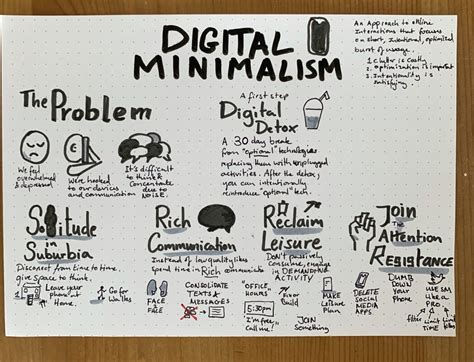 DIGITAL
MINIMALISM
An Approach to online
Interactions that focuses
on short, Intentional, optimized
burst of useage.
1. Clutter is costly
2. Optimization is important
3. Intentionality is
satisfying.
The Problem
We feel
overwhelmed
& depressed
We're hooked
to our devices
and communication
It's difficult
to think &
Concentrate
due to
NOISE.
A first step
Digital
Detox
A 30 day break
from "optional" technologies
replacing them with unplugged
activities. After the detox,
you can intentionally
reintroduce "optional" tech.
Solitude
in
Suburbia
Disconnect from time to time.
give space to think.
Leave your
phone at
Home.
Go for
Walks
Rich
Communication
Instead of low quality likes
spend time in Rich communicatio
FACE
to
FACE
CONSOLIDATE
TEXTS &
MESSAGES
"OFFICE"
HOURS
5:30pm
I'm free,
Call me!
Reclaim
Leisure
Don't passively
consume, engage
in DEMANDING
ACTIVITY
Fix or
Build
MAKE
Leisure
Plan
JOIN
Something
Join
The Attention
Resistance
DELETE
SOCIAL
MEDIA
APPS
DUMB
DOWN
Your
Phone
USE SM
Like a
PRO.
filter
limit
time